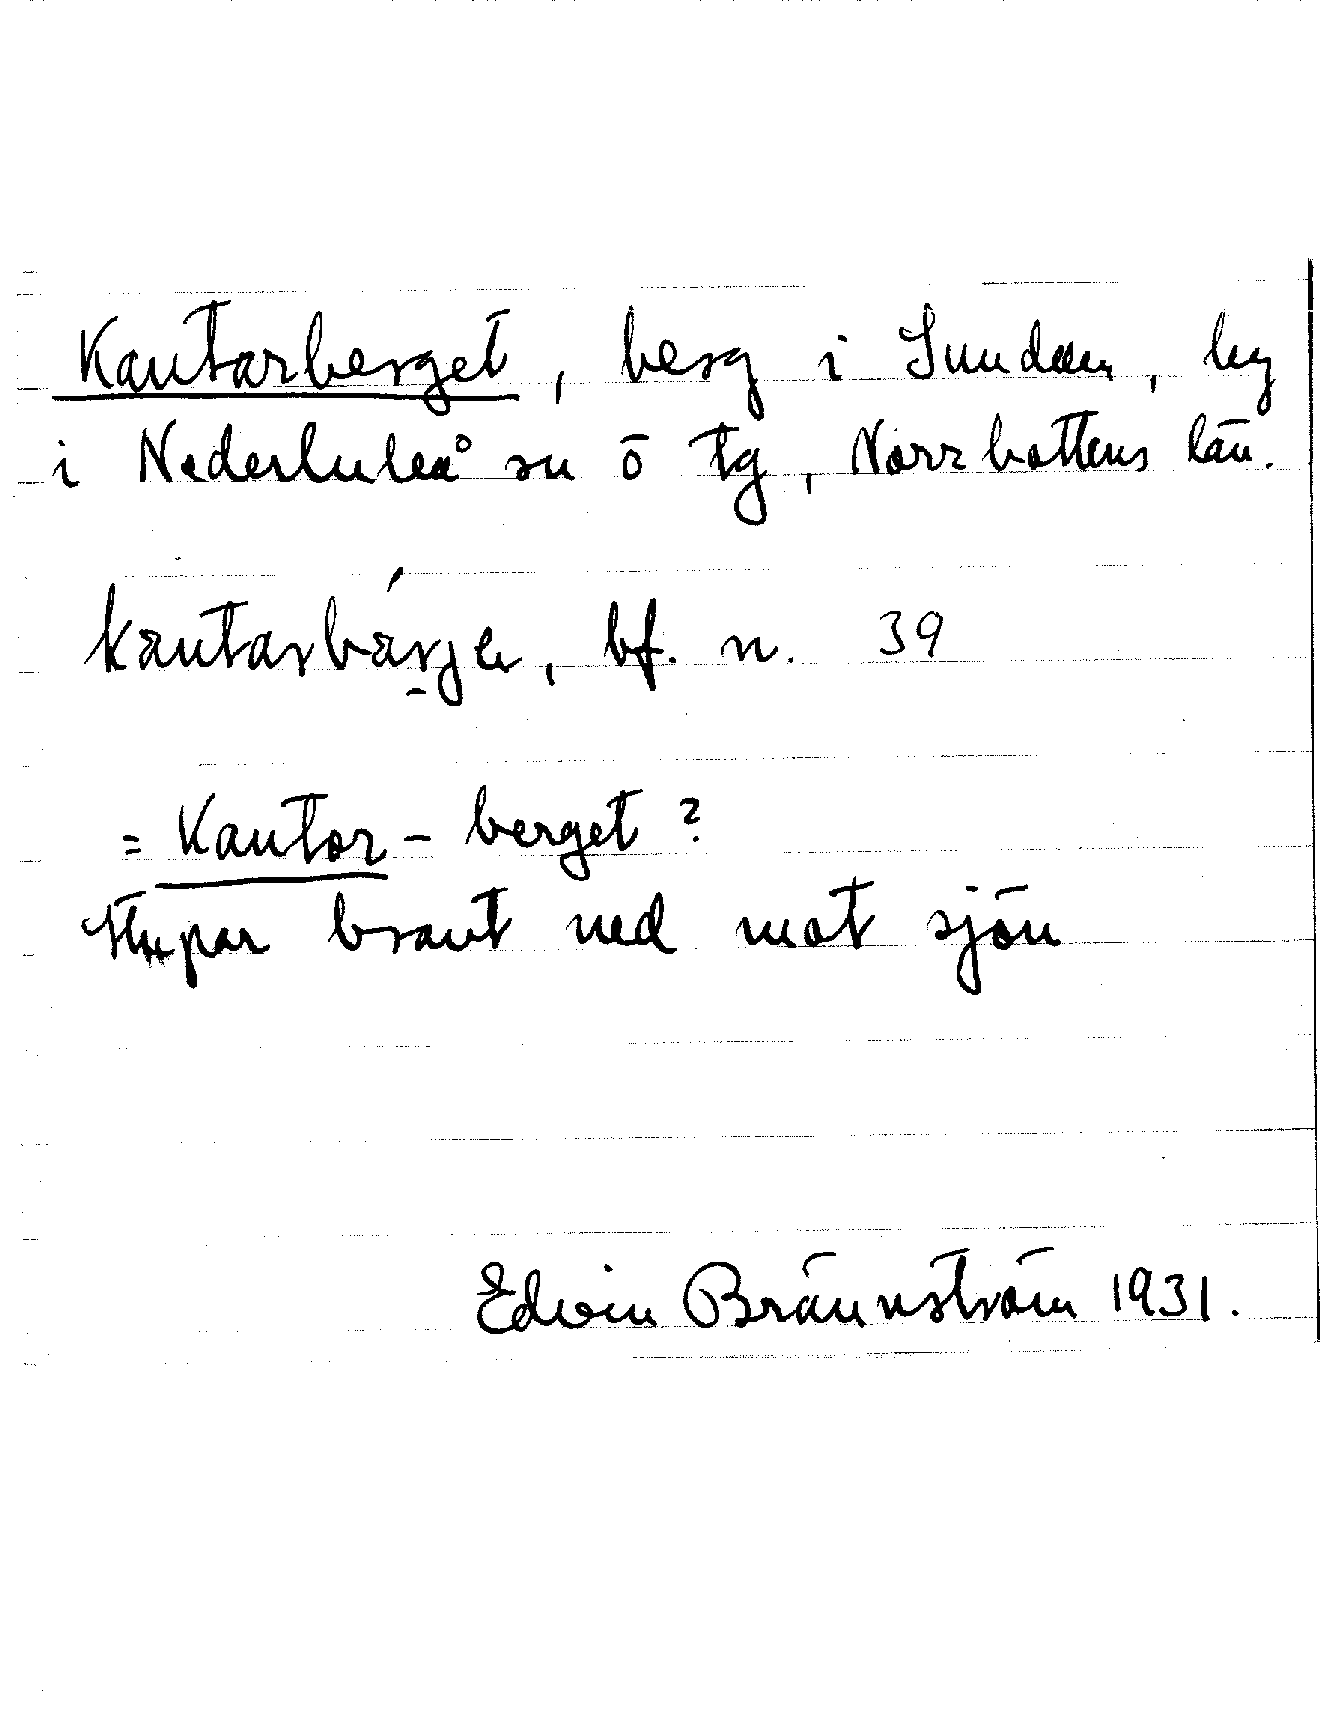 Kantarberget, berg i Sundom, by
i Nederluleå sn ö tg, Norrbottens län.
kantarbä́rje, bf. n. 39
= Kantor-berget?
Stupar brant ned mot sjön
Edvin Brännström 1931.